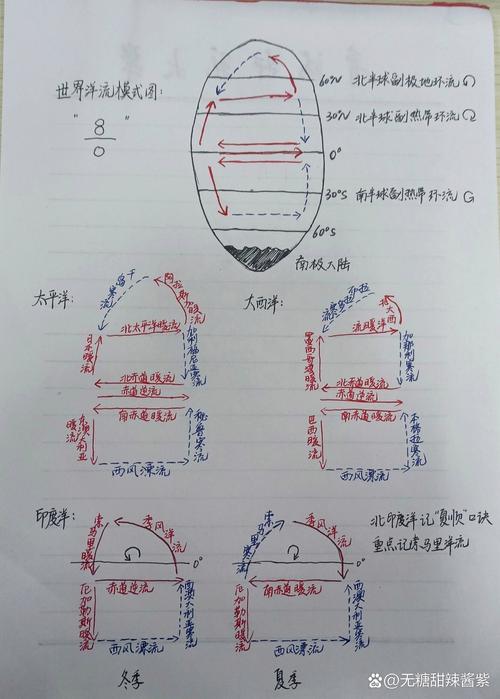 世界洋流模式图:
"8"
0
60°N 北半球副极地环流
30°N 北半球副热带环流
0°
30°S 南半球副热带环流
60°S
南极大陆
太平洋:
千岛寒流
阿拉斯加暖流
北太平洋暖流
日本暖流
加利福尼亚寒流
北赤道暖流
赤道逆流
南赤道暖流
东澳大利亚暖流
秘鲁寒流
西风漂流
大西洋:
北大西
洋暖流
墨西哥湾暖流
加那利寒流
北赤道暖流
赤道逆流
南赤道暖流
巴西暖流
本格拉寒流
西风漂流
印度洋:
索马里暖流
季风洋流
0°
赤道逆流
厄加勒斯暖流
西澳大利亚寒流
西风漂流
冬季
索马里寒流
季风洋流
0°
南赤道暖流
厄加勒斯暖流
西澳大利亚寒流
西风漂流
夏季
北印度洋记"夏顺"口诀
重点记索马里洋流
@无糖甜辣酱紫